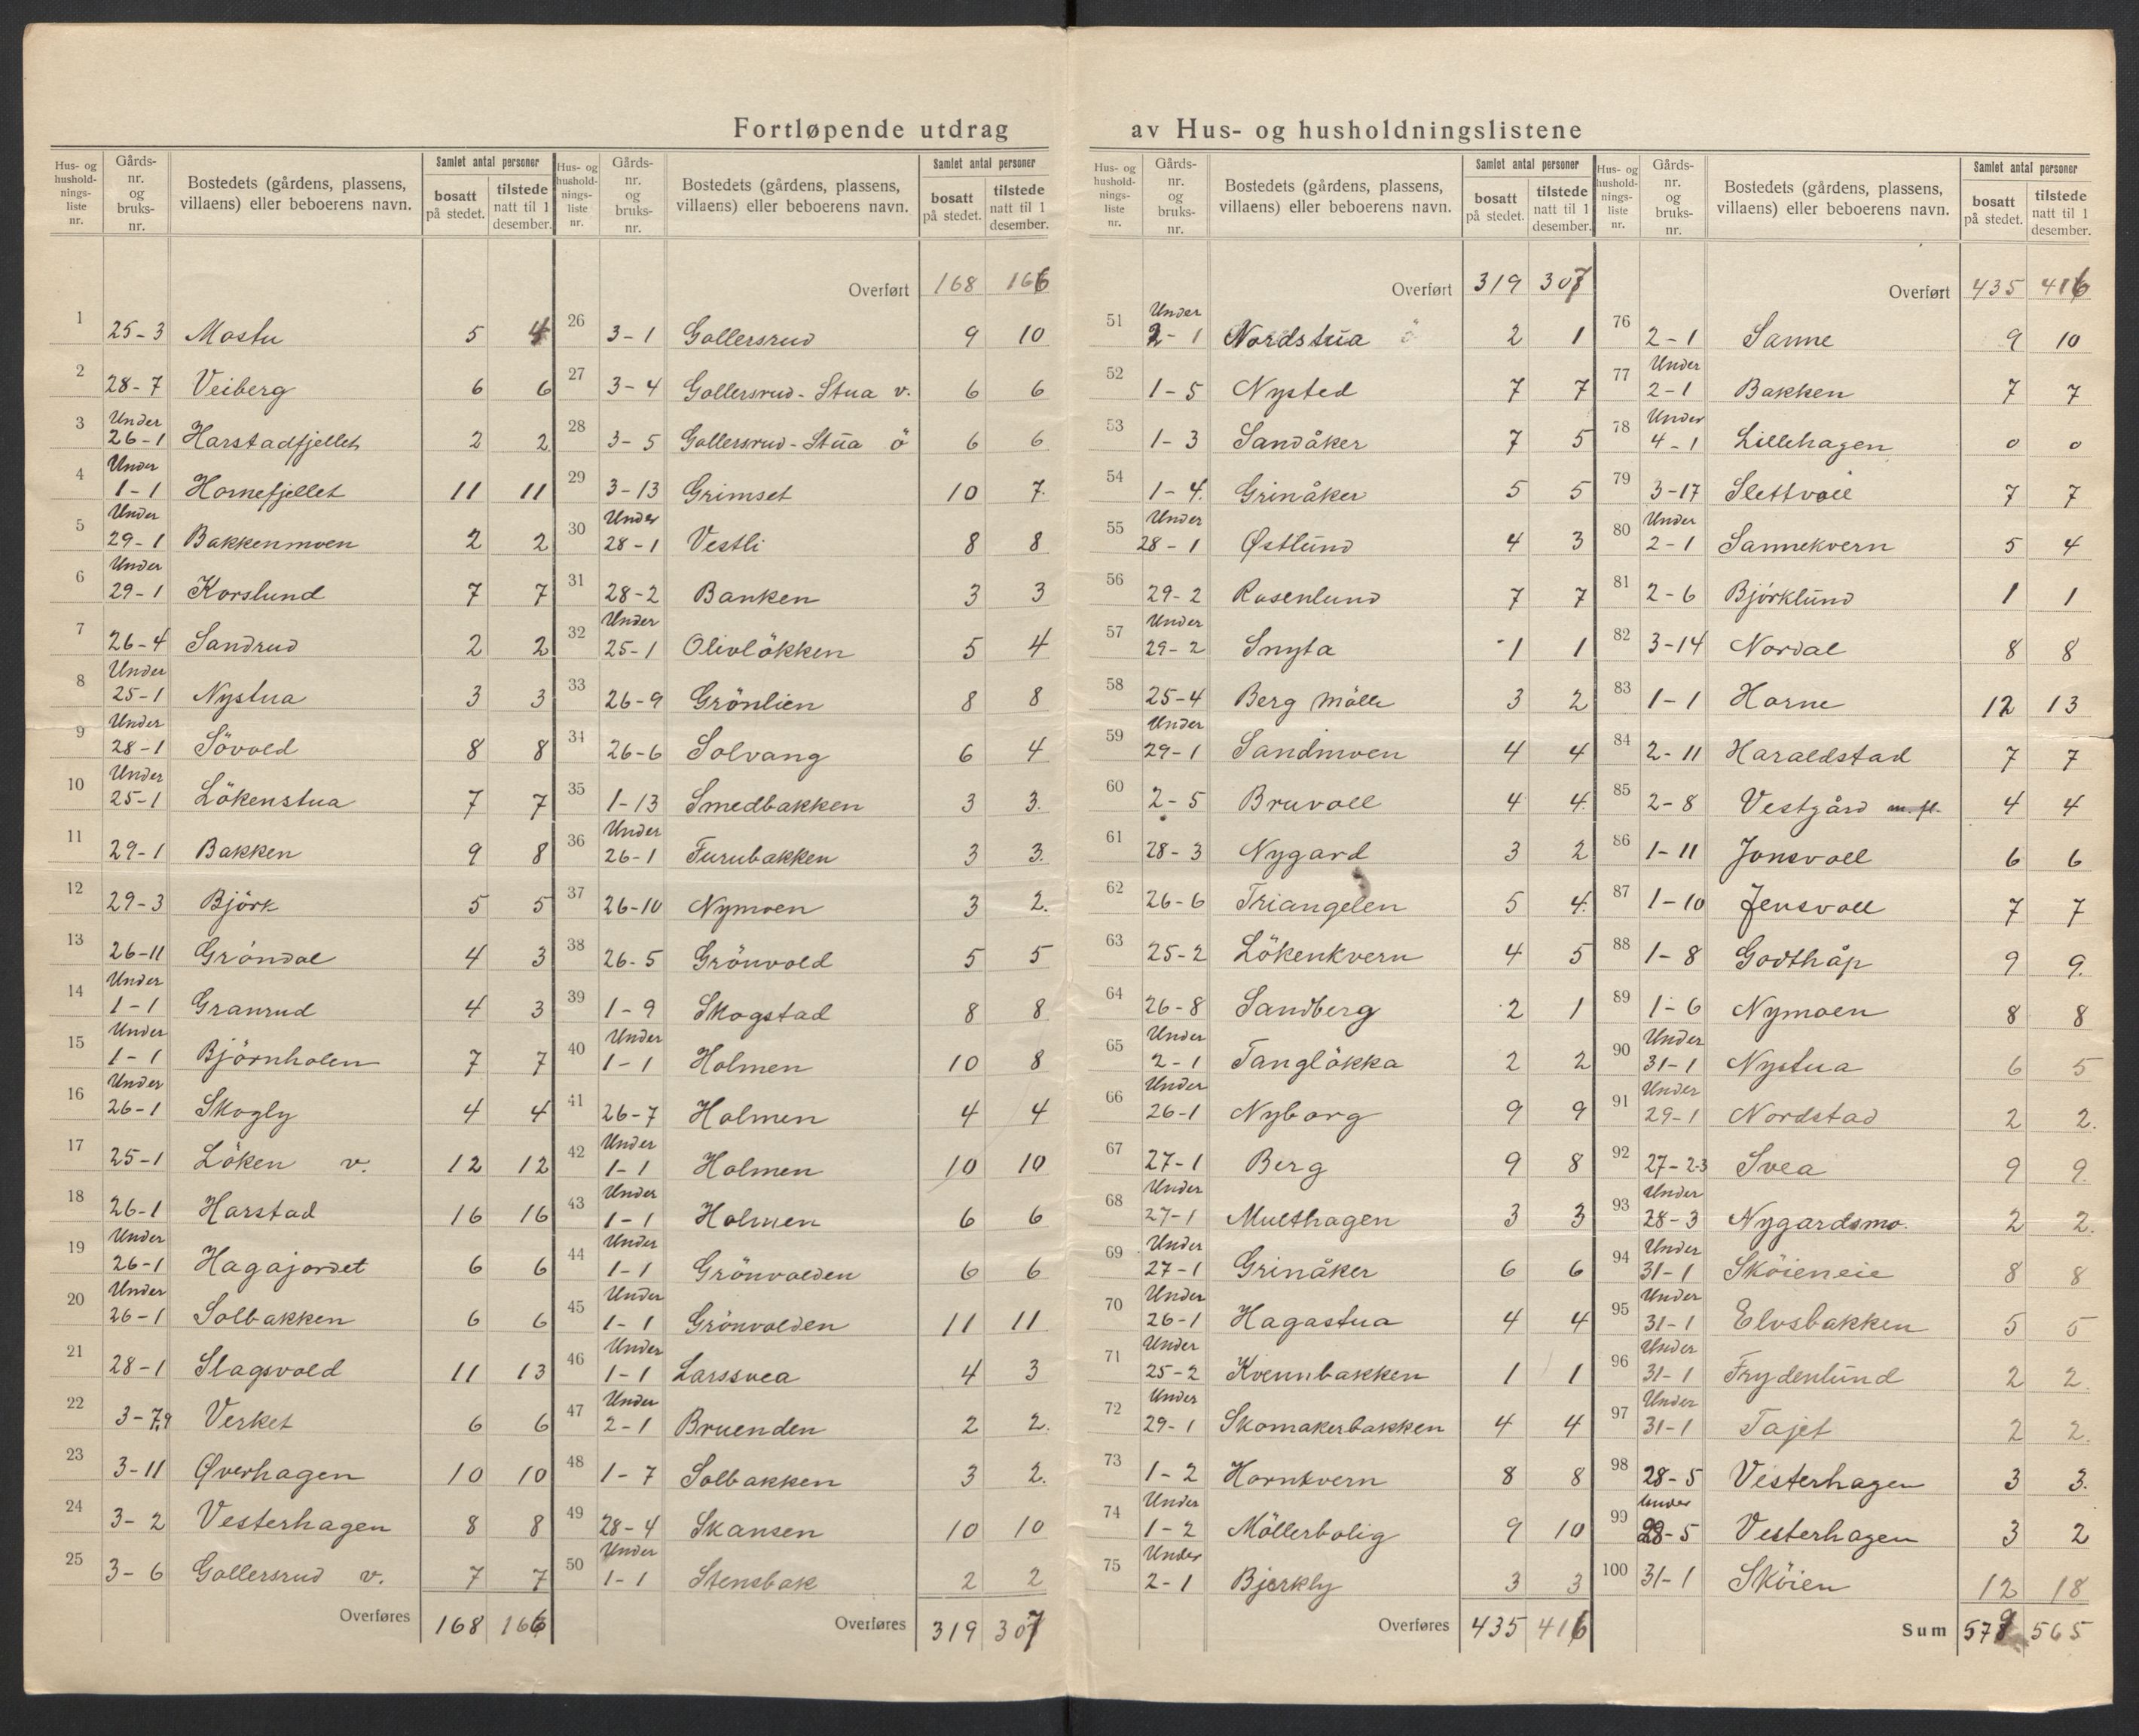 Fortløpende utdrag av Hus- og husholdningslistene
Hus- og husholdningsliste nr. | Gårds- nr. og bruks- nr. | Bostedets (gårdens, plassens, villaens) eller beboerens navn. | Samlet antal personer bosatt på stedet. | tilstede natt til 1 desember.
1 25-3 Mostu 5 4
2 28-7 Veiberg 6 6
3 Under 26-1 Harstadfjellet 2 2
4 Under 1-1 Hornefjellet 11 11
5 Under 29-1 Bakkenmoen 2 2
6 Under 29-1 Korslund 7 7
7 26-4 Sandrud 2 2
8 Under 25-1 Nystua 3 3
9 Under 28-1 Sövold 8 8
10 Under 25-1 Lökenstua 7 7
11 29-1 Bakken 9 8
12 29-3 Björk 5 5
13 26-11 Gröndal 4 3
14 Under 1-1 Granrud 4 3
15 Under 1-1 Björnholen 7 7
16 Under 26-1 Skogly 4 4
17 25-1 Löken v. 12 12
18 26-1 Harstad 16 16
19 Under 26-1 Hagajordet 6 6
20 Under 26-1 Solbakken 6 6
21 28-1 Slagsvold 11 13
22 3-7,9 Verket 6 6
23 3-11 Øverhagen 10 10
24 3-2 Vesterhagen 8 8
25 3-6 Gollersrud v. 7 7
Overføres 168 166
Hus- og husholdningsliste nr. | Gårds- nr. og bruks- nr. | Bostedets (gårdens, plassens, villaens) eller beboerens navn. | Samlet antal personer bosatt på stedet. | tilstede natt til 1 desember.
Overført 168 166
26 3-1 Gollersrud 9 10
27 3-4 Gollersrud-Stua v. 6 6
28 3-5 Gollersrud-Stua ö 6 6
29 3-13 Grimset 10 7.
30 Under 28-1 Vestli 8 8
31 28-2 Banken 3 3
32 Under 25-1 Olivlökken 5 4
33 26-9 Grönlien 8 8
34 26-6 Solvang 6 4
35 1-13 Smedbakken 3 3.
36 Under 26-1 Furubakken 3 3.
37 26-10 Nymoen 3 2.
38 26-5 Grönvold 5 5
39 1-9 Skogstad 8 8
40 Under 1-1 Holmen 10 8
41 26-7 Holmen 4 4
42 Under 1-1 Holmen 10 10
43 Under 1-1 Holmen 6 6
44 Under 1-1 Grönvolden 6 6
45 Under 1-1 Grönvolden 11 11
46 Under 1-1 Larssvea 4 3
47 Under 2-1 Bruenden 2 2.
48 1-7 Solbakken 3 2.
49 28-4 Skansen 10 10
50 Under 1-1 Stensbak 2 2
Overføres 319 307
Hus- og husholdningsliste nr. | Gårds- nr. og bruks- nr. | Bostedets (gårdens, plassens, villaens) eller beboerens navn. | Samlet antal personer bosatt på stedet. | tilstede natt til 1 desember.
Overført 319 307
51 Under 2-1 Nordstua ö 2 1
52 1-5 Nysted 7 7
53 1-3 Sandåker 7 5
54 1-4. Grinåker 5 5
55 Under 28-1 Østlund 4 3
56 29-2 Rosenlund 7 7
57 Under 29-2 Snyta 1 1
58 25-4 Berg Mölle 3 2
59 Under 29-1 Sandmoen 4 4
60 2-5 Bruvoll 4 4.
61 28-3 Nygard 3 2
62 26-6 Triangelen 5 4.
63 25-2 Lökenkvern 4 5
64 26-8 Sandberg 2 1
65 Under 2-1 Tanglökka 2 2
66 Under 26-1 Nyborg 9 9
67 27-1 Berg 9 8
68 Under 27-1 Multhagen 3 3
69 Under 27-1 Grinåker 6 6
70 Under 26-1 Hagastua 4 4
71 Under 25-2 Kvernbakken 1 1
72 Under 29-1 Skomakerbakken 4 4
73 1-2 Hornkvern 8 8
74 Under 1-2 Möllerbolig 9 10
75 Under 2-1 Bjerkly 3 3
Overføres 435 416
Hus- og husholdningsliste nr. | Gårds- nr. og bruks- nr. | Bostedets (gårdens, plassens, villaens) eller beboerens navn. | Samlet antal personer bosatt på stedet. | tilstede natt til 1 desember.
Overført 435 416
76 2-1 Sanne 9 10
77 Under 2-1 Bakken 7 7
78 Under 4-1 Lillehagen 0 0
79 3-17 Slettvoll 7 7
80 Under 2-1 Sannekvern 5 4
81 2-6 Björklund 1 1
82 3-14 Nordal 8 8
83 1-1 Horne 12 13
84 2-11 Haraldstad 7 7
85 2-8 Vestgård m.fl. 4 4
86 1-11 Jonsvoll 6 6
87 1-10 Jensvoll 7 7
88 1-8 Godthåp 9 9.
89 1-6 Nymoen 8 8
90 Under 31-1 Nystua 6 5
91 Under 29-1 Nordstad 2 2.
92 27-2-3 Svea 9 9.
93 Under 28-3 Nygardsmo. 2 2.
94 Under 31-1 Sköieneie 8 8
95 Under 31-1 Elvsbakken 5 5
96 Under 31-1 Frydenlund 2 2.
97 Under 31-1 Tajet 2 2.
98 28-5 Vesterhagen 3 3.
99 Under 28-5 Vesterhagen 3 2
100 31-1 Sköien 12 18
Sum 579 565